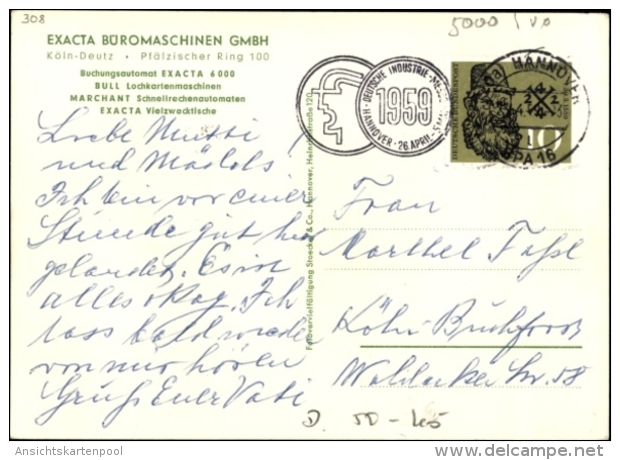 308
5000 / VP
EXACTA BÜROMASCHINEN GMBH
Köln-Deutz · Pfälzischer Ring 100
Buchungsautomat EXACTA 6000
BULL Lochkartenmaschinen
MARCHANT Schnellrechenautomaten
EXACTA Vielzwecktische
DEUTSCHE INDUSTRIE-MESSE
1959
HANNOVER · 26. APRIL-5. MAI
HANNOVER
DEUTSCHE BUNDESPOST
10
Liebe Mutti
und Mädels!
Ich bin vor einer
Stunde gut hier
gelandet. Es ist
alles okay. Ich
lass bald wieder
von mir hören
Gruß Euer Vati
Fotovervielfältigung Staecker & Co., Hannover, Heinrichstraße 120
Frau
Marthel
Köln-Buchforst
Str. 58
D. 50-45
Ansichtskartenpool
delcampe.net